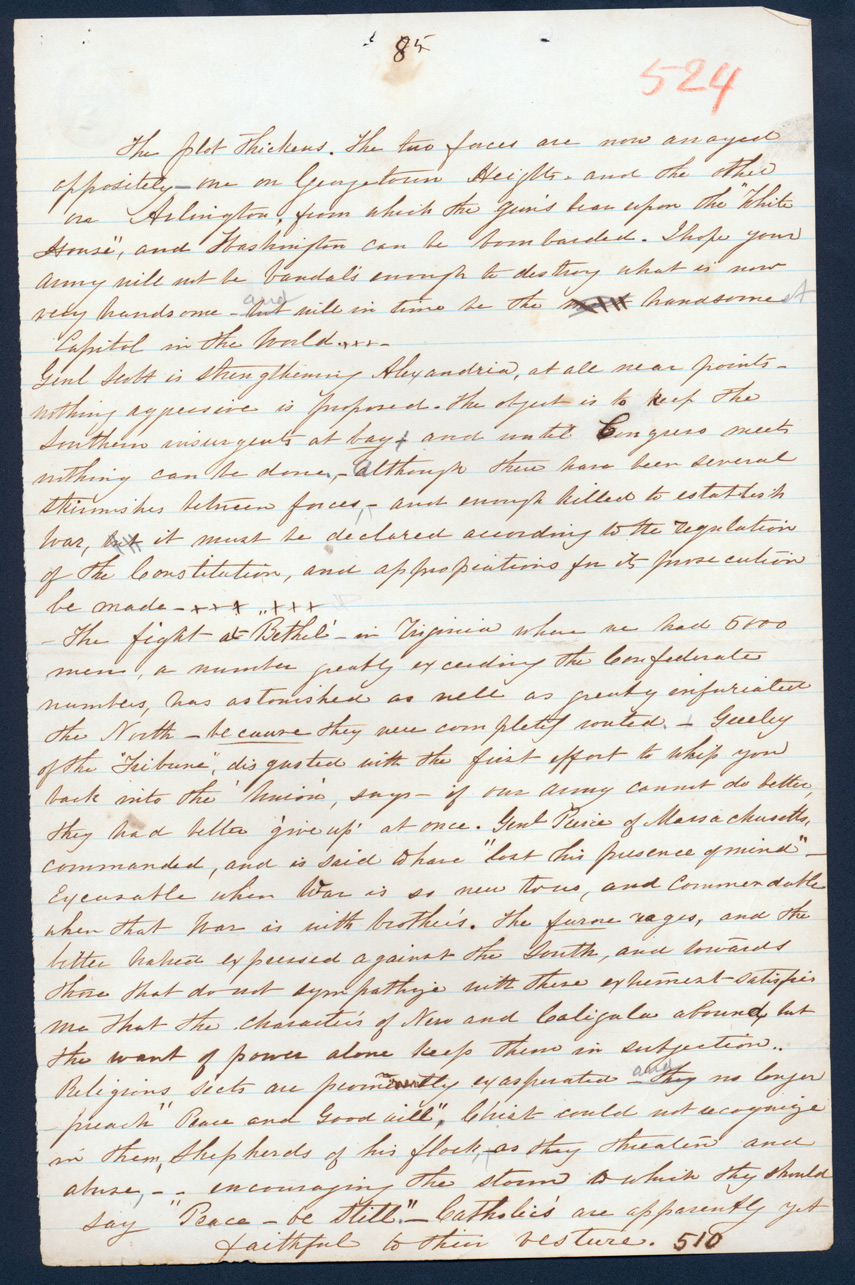 85
524
The plot thickens. The two forces are now arrayed
oppositely - one on Georgetown Heights - and the other
on Arlington, from which the gun's bear upon the "White
House", and Washington can be bombarded. I hope your
army will not be vandal's enough to destroy what is now
very handsome - but and will in time be the handsomest
Capitol in the World. x x x -
Genl Scott is strengthening Alexandria, at all near points -
nothing aggressive is proposed. The object is to keep the
Southern insurgents at bay, and until Congress meets
nothing can be done, - although there have been several
skirmishes between forces, - and enough killed to establish
War, but it must be declared according to the regulation
of the Constitution, and appropiations for its prosecution
be made - x x x " x x x
- The fight at "Bethel" - in Virginia where we had 5000
men, a number greatly exceeding the Confederate
numbers, has astonished as well as greatly infuriated
the North - because they were completly routed. - Greeley
of the "Tribune", disgusted with the first effort to whip you
back into the 'Union', says - if our army cannot do better,
they had better 'give up' at once. Genl Peirce of Massachusetts,
commanded, and is said to have "lost his presence of mind" -
Excusable when War is so new to us, and commendable
when that War is with brother's. The furore rages, and the
bitter hatred expressed against the South, and towards
those that do not sympathize with these extremest - satisfies
me that the character's of Nero and Caligula abound, but
the want of power alone keep them in subjection..
Religious sects are prominently exasperated - they and no longer
preach "Peace and Good will", Christ could not recognize
in them, Shepherds of his flock, as they threaten and
abuse, - - encouraging the storm to which they should
say "Peace - be still." - Catholic's are apparently yet
faithful to their vesture. 510